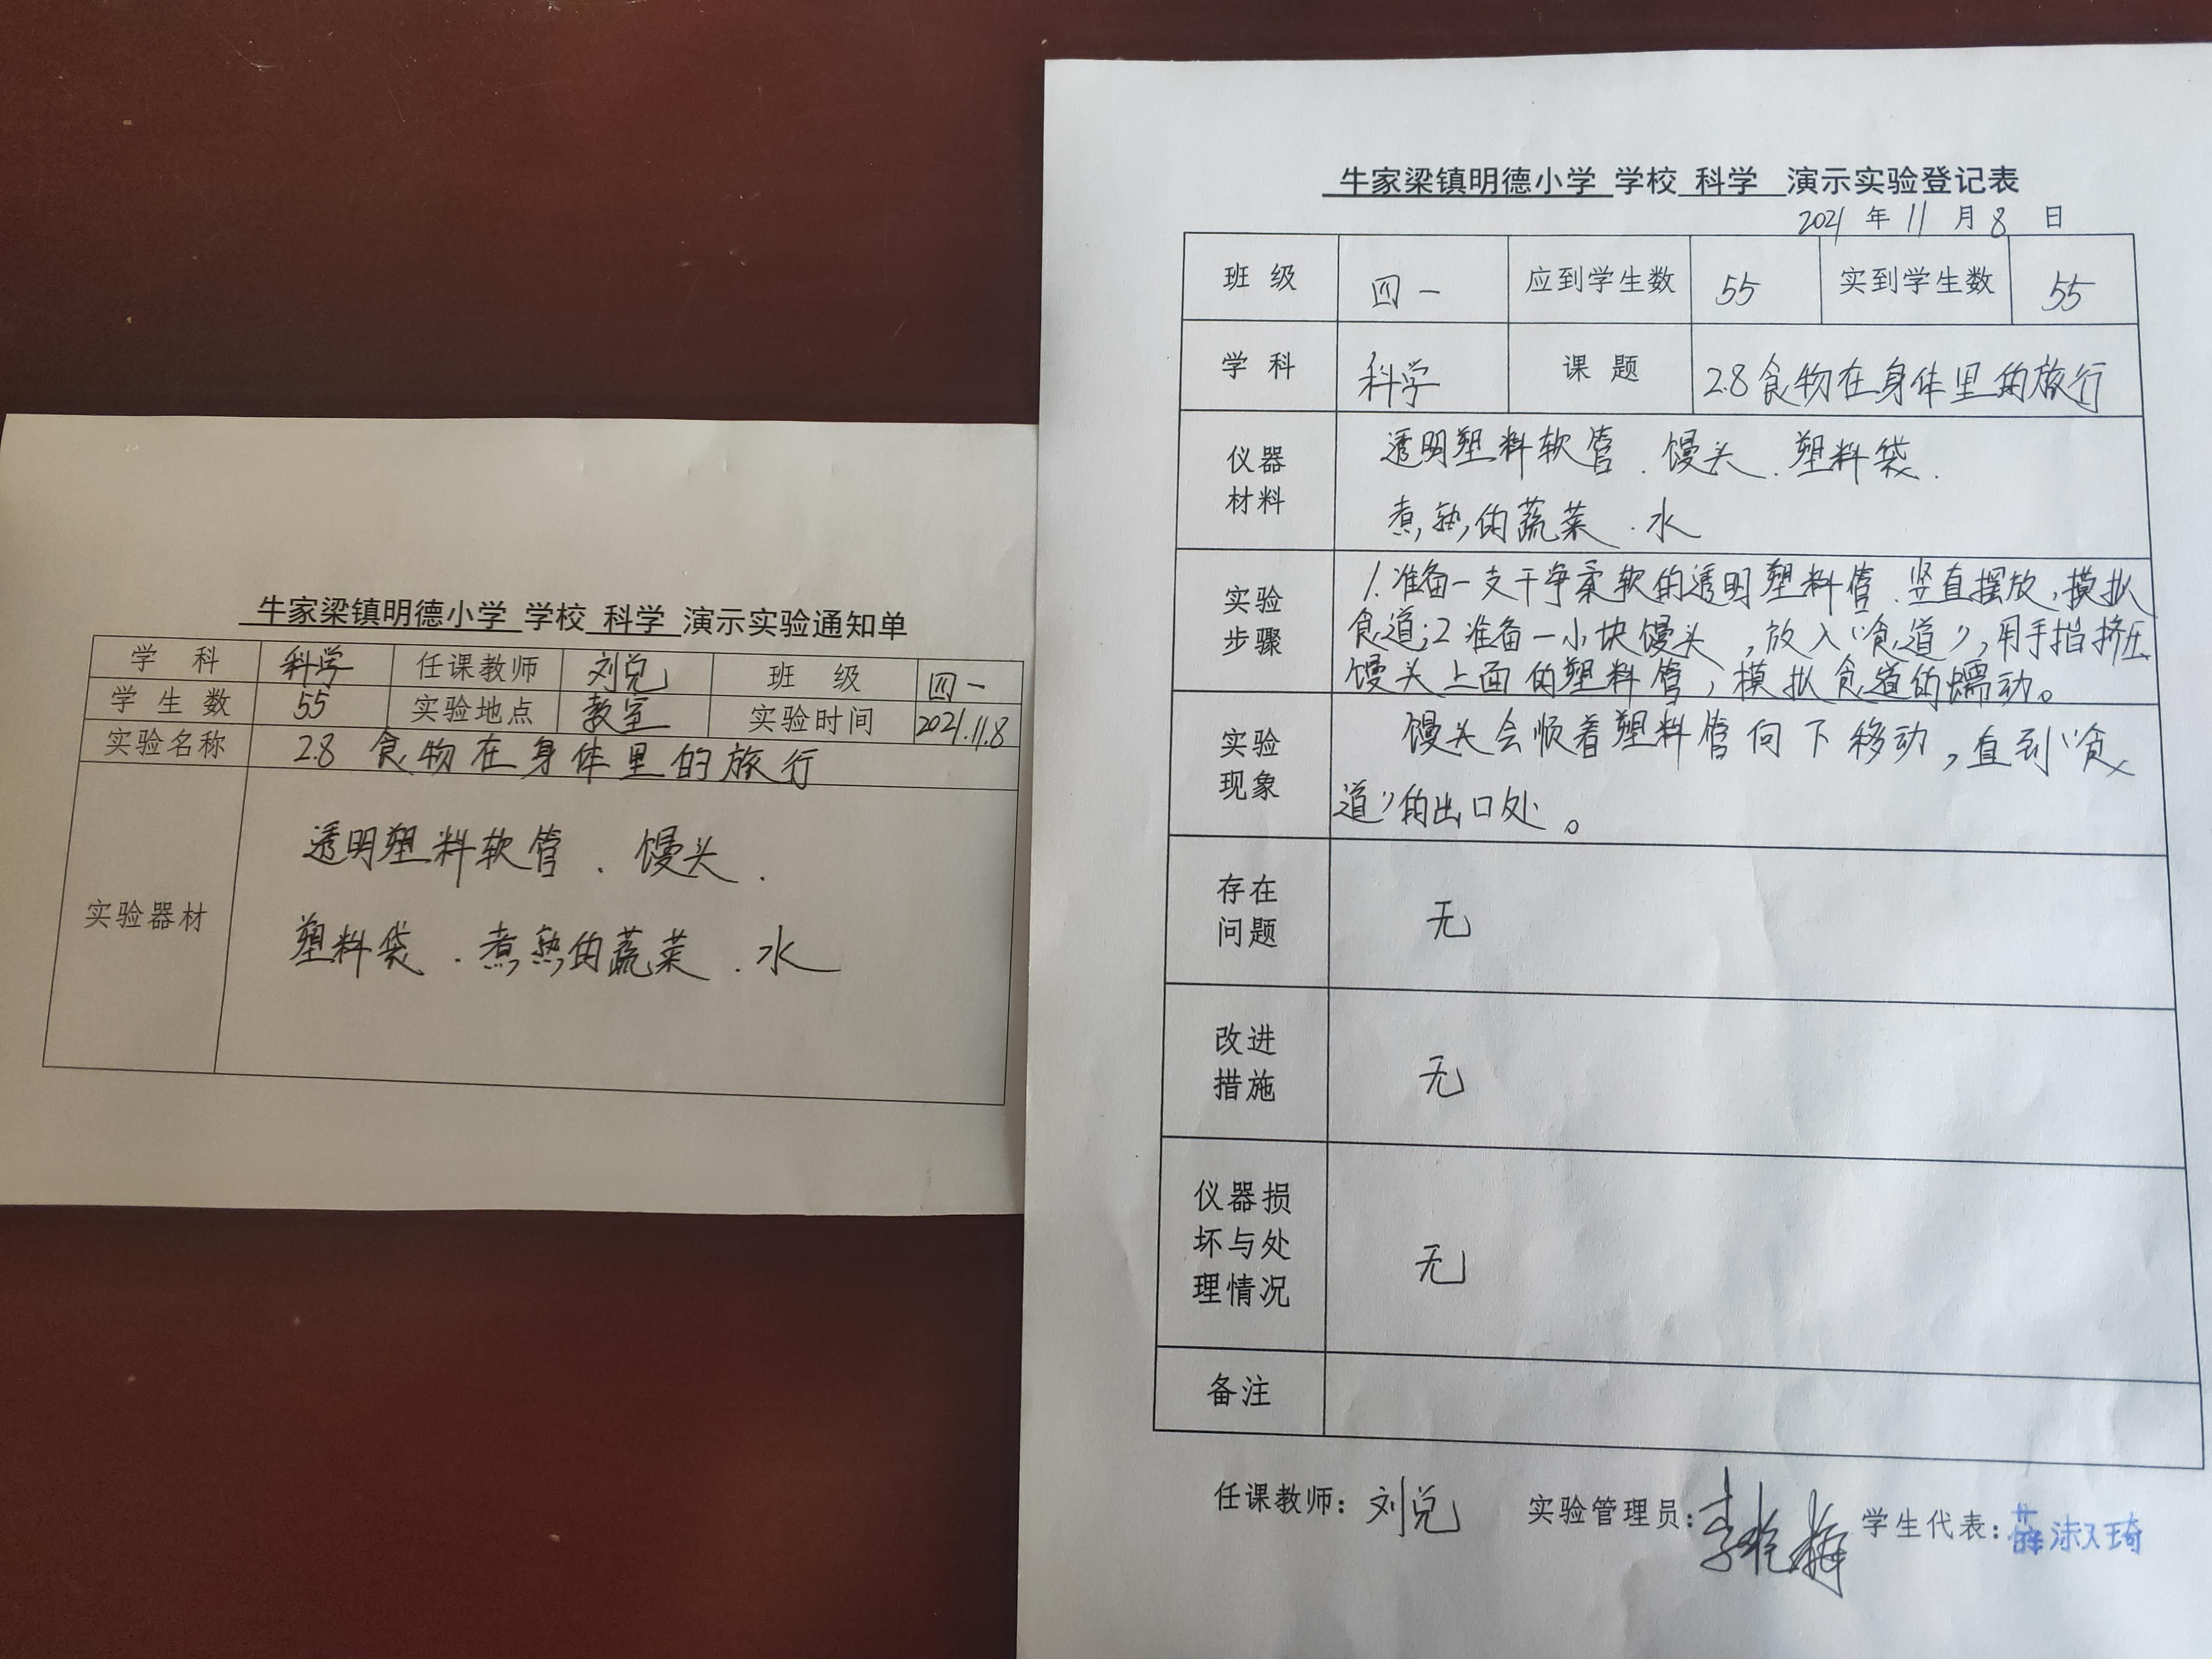 牛家梁镇明德小学 学校 科学 演示实验通知单
学 科 科学 任课教师 刘兑 班 级 四一
学 生 数 55 实验地点 教室 实验时间 2021.11.8
实验名称 2.8 食物在身体里的旅行
实验器材
透明塑料软管、馒头、
塑料袋、煮熟的蔬菜、水
牛家梁镇明德小学 学校 科学 演示实验登记表
2021 年 11 月 8 日
班 级 四一 应到学生数 55 实到学生数 55
学 科 科学 课 题 2.8食物在身体里的旅行
仪器
材料
透明塑料软管、馒头、塑料袋、
煮熟的蔬菜、水
实验
步骤
1.准备一支干净柔软的透明塑料管、竖直摆放,模拟
食道;2准备一小块馒头,放入“食道”,用手指挤压
馒头上面的塑料管,模拟食道的蠕动。
实验
现象
馒头会顺着塑料管向下移动,直到“食
道”的出口处。
存在
问题
无
改进
措施
无
仪器损
坏与处
理情况
无
备注
任课教师:刘兑 实验管理员: 学生代表:薛淑琦